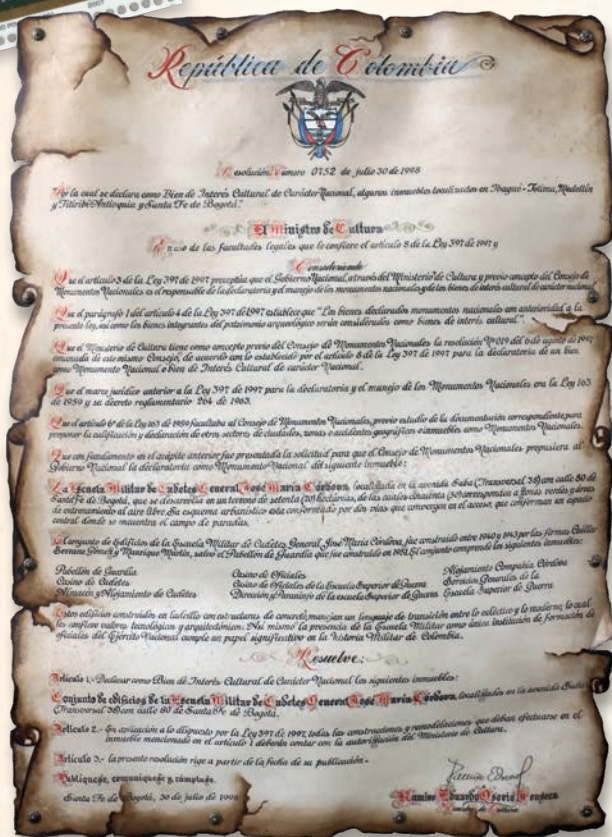 República de Colombia
Resolución Número 0752 de julio 30 de 1998
"Por la cual se declara como Bien de Interés Cultural de Carácter Nacional, algunos inmuebles localizados en Ibagué - Tolima, Medellín
y Titiribí Antioquia y Santa Fe de Bogotá."
El Ministro de Cultura
En uso de las facultades legales que le confiere el artículo 8 de la Ley 397 de 1997 y
Considerando
Que el artículo 8 de la Ley 397 de 1997 preceptúa que el Gobierno Nacional, a través del Ministerio de Cultura y previo concepto del Consejo de
Monumentos Nacionales es el responsable de la declaratoria y el manejo de los monumentos nacionales y de los bienes de interés cultural de carácter nacional.
Que el parágrafo 1 del artículo 4 de la Ley 397 de 1997 establece que "Los bienes declarados monumentos nacionales con anterioridad a la
presente ley, así como los bienes integrantes del patrimonio arqueológico serán considerados como bienes de interés cultural".
Que el Ministerio de Cultura tiene como concepto previo del Consejo de Monumentos Nacionales la resolución Nº 019 del 6 de agosto de 1997
emanada de este mismo Consejo, de acuerdo con lo establecido por el artículo 8 de la Ley 397 de 1997 para la declaratoria de un bien
como Monumento Nacional o bien de Interés Cultural de carácter Nacional.
Que el marco jurídico anterior a la Ley 397 de 1997 para la declaratoria y el manejo de los Monumentos Nacionales era la Ley 163
de 1959 y su decreto reglamentario 264 de 1963.
Que el artículo 6º de la Ley 163 de 1959 facultaba al Consejo de Monumentos Nacionales, previo estudio de la documentación correspondiente, para
proponer la calificación y declaración de otros sectores de ciudades, zonas o accidentes geográficos e inmuebles como Monumentos Nacionales.
Que con fundamento en el acápite anterior fue presentada la solicitud para que el Consejo de Monumentos Nacionales propusiera al
Gobierno Nacional la declaratoria como Monumento Nacional del siguiente inmueble:
La Escuela Militar de Cadetes General José María Córdova, localizada en la avenida Suba (Transversal 38) con calle 80 de
Santa Fe de Bogotá, que se desarrolla en un terreno de setenta (70) hectáreas, de las cuales cincuenta (50) corresponden a zonas verdes y áreas
de entrenamiento al aire libre. Su esquema urbanístico esta conformado por dos vías que convergen en el acceso, que conforman un espacio
central donde se encuentra el campo de paradas.
El conjunto de Edificios de la Escuela Militar de Cadetes General, José María Córdova, fue construido entre 1940 y 1943 por las firmas Cuéllar
Serrano Gómez y Manrique Martín, salvo el Pabellón de Guardia que fue construido en 1951. El conjunto comprende los siguientes inmuebles:
Pabellón de Guardia Casino de Oficiales Alojamiento Compañía Córdova
Casino de Cadetes Casino de Oficiales de la Escuela Superior de Guerra Servicios Generales de la
Almacén y Alojamiento de Cadetes Dirección y Paraninfo de la Escuela Superior de Guerra Escuela Superior de Guerra
Estos edificios construidos en ladrillo con estructuras de concreto, manejan un lenguaje de transición entre lo ecléctico y lo moderno, lo cual
les confiere valores tecnológicos y arquitectónicos. Así mismo la presencia de la Escuela Militar como única institución de formación de
oficiales del Ejército Nacional cumple un papel significativo en la historia Militar de Colombia.
Resuelve:
Artículo 1.- Declarar como Bien de Interés Cultural de Carácter Nacional los siguientes inmuebles:
Conjunto de edificios de la Escuela Militar de Cadetes General José María Córdova, localizados en la avenida Suba
(Transversal 38) con calle 80 de Santa Fe de Bogotá.
Artículo 2.- En aplicación a lo dispuesto por la Ley 397 de 1997, todas las construcciones y remodelaciones que deban efectuarse en el
inmueble mencionado en el artículo 1 deberán contar con la autorización del Ministerio de Cultura.
Artículo 3.- la presente resolución rige a partir de la fecha de su publicación.
Publíquese, comuníquese y cúmplase.
Santa Fe de Bogotá, 30 de julio de 1998
Ramiro Eduardo Osorio Fonseca
Ministro de Cultura